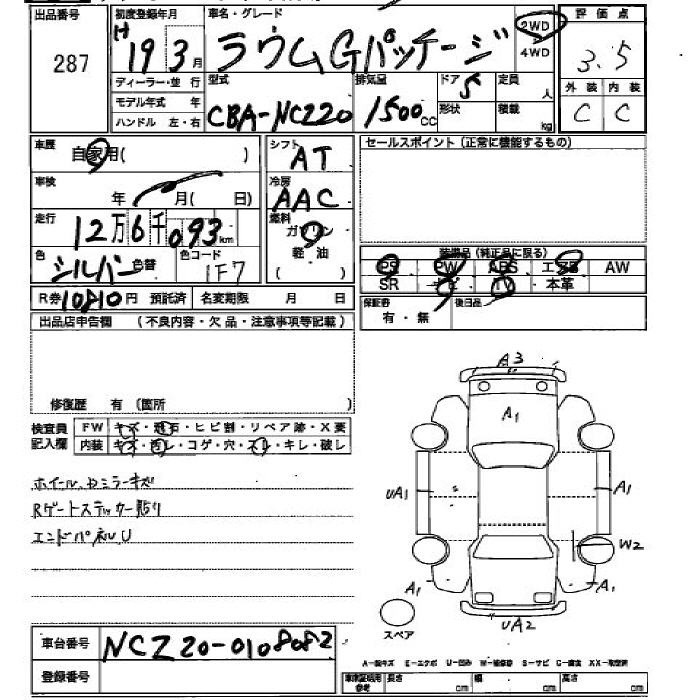 出品番号 287
初度登録年月 H19 3月
車名・グレード ラウム Gパッケージ
2WD 4WD
評価点 3.5
外装 内装
C C
ディーラー・並 行
モデル年式 年
ハンドル 左・右
型式 CBA-NCZ20
排気量 1500cc
ドア 5
形状
定員 人
積載 kg
車歴 自家用( )
車検 年 月( 日)
走行 12万6千093km
色 シルバー 色替
色コード 1F7
シフト AT
冷房 AAC
燃料 ガソリン
軽油
( )
セールスポイント (正常に機能するもの)
装備品 (純正品に限る)
PS PW ABS エアB AW
SR ナビ TV 本革
保証書 有・無
後日品
R券10810円 預託済 名変期限 月 日
出品店申告欄 (不良内容・欠品・注意事項等記載)
修復歴 有 (箇所 )
検査員記入欄
FW キズ・飛石・ヒビ割・リペア跡・X要
内装 キズ・汚レ・コゲ・穴・スレ・キレ・破レ
ホイール、Dミラーキズ
Rゲートステッカー貼り
エンドパネルU
A3
A1
UA1
A1
W2
A1
A1
UA2
スペア
車台番号 NCZ20-0108082
登録番号
A-線キズ E-エクボ U-凹み W-補修跡 S-サビ C-腐食 XX-取替済
車庫証明用参考 長さ cm 幅 cm 高さ cm